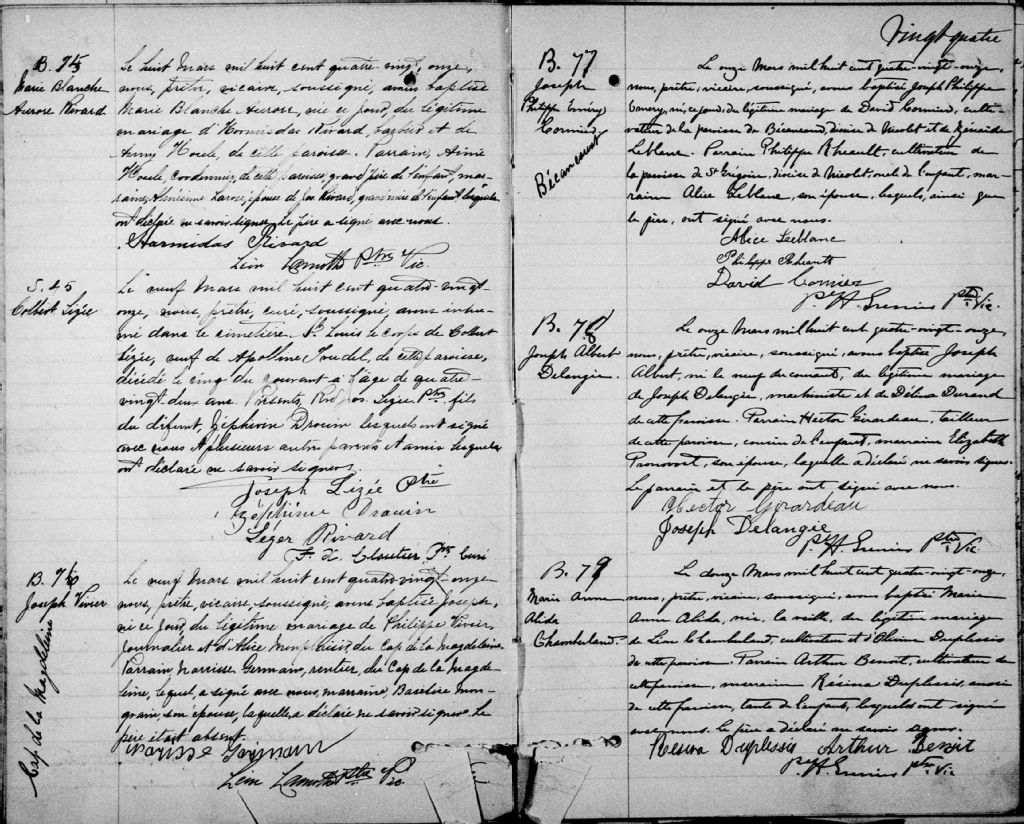 B. 75
Marie Blanche
Aurore Rivard
Le huit Mars mil huit cent quatre vingt, onze,
nous, prêtre, vicaire, soussigné, avons baptisé
Marie Blanche, Aurore, née ce jour, du légitime
mariage d'Hormisdas Rivard, et de
Houle, de cette paroisse. Parrain, Aimé
Houle, cordonnier, de cette paroisse, grand père de l'enfant, mar-
raine, Larose, épouse de Jos Rivard, grand'mère de l'enfant, lesquels
ont déclaré ne savoir signer. Le père a signé avec nous.
Harmidas Rivard
Léon Lamothe Ptre Vic.
S. 25
Colbert Lizée
Le neuf Mars mil huit cent quatre-vingt-
onze, nous, prêtre, curé, soussigné, avons inhu-
mé dans le cimetière St Louis le corps de Colbert
Lizée, veuf de Apolline, de cette paroisse,
décédé le cinq du courant à l'âge de quatre-
vingt-deux ans. Présents, Rvd Jos. Lizée Ptre, fils
du défunt, Zéphirin Drouin lesquels ont signé
avec nous & plusieurs autres parents et amis lesquels
ont déclaré ne savoir signer.
Joseph Lizée Ptre
Zéphirine Drouin
Léger Rivard
F. X. Cloutier Ptre Curé
B. 76
Joseph Vivier
Cap de la Magdeleine
Le neuf Mars mil huit cent quatre-vingt-onze
nous, prêtre, vicaire, soussigné, avons baptisé Joseph,
né ce jour, du légitime mariage de Philippe Vivier,
journalier et d'Alice Montplaisir, du Cap de la Magdeleine.
Parrain, Narcisse Germain, rentier, du Cap de la Magde-
leine, lequel a signé avec nous, marraine, Mon-
grain, son épouse, laquelle, a déclaré ne savoir signer. Le
père était absent.
Narcisse Germain
Léon Lamothe Ptre Vic
Vingt quatre
B. 77
Joseph
Philippe Emery
Cormier
Bécancourt
Le onze Mars mil huit cent quatre-vingt-onze,
nous, prêtre, vicaire, soussigné, avons baptisé Joseph Philippe
Emery, né, ce jour, du légitime mariage de David Cormier, culti-
vateur de la paroisse de Bécancourt, diocèse de Nicolet et de Zénaïde
Leblanc. Parrain Philippe Rheault, cultivateur de
la paroisse de St Grégoire, diocèse de Nicolet, oncle de l'enfant, mar-
raine Alice Leblanc, son épouse, lesquels, ainsi que
le père, ont signé avec nous.
Alice Leblanc
Philippe Rheault
David Cormier
Ptre Vic.
B. 78
Joseph Albert
Delangie.
Le onze Mars mil huit cent quatre-vingt-onze,
nous, prêtre, vicaire, soussigné, avons baptisé Joseph
Albert, né le neuf du courant, du légitime mariage
de Joseph Delangie, machiniste et de Délina Durand
de cette paroisse. Parrain Hector Girardeau, tailleur
de cette paroisse, cousin de l'enfant, marraine Elizabeth
Pronovost, son épouse, laquelle a déclaré ne savoir signer.
Le parrain et le père ont signé avec nous.
Hector Girardeau
Joseph Delangie
Ptre Vic.
B. 79
Marie Anne
Alida
Chamberland
Le douze Mars mil huit cent quatre-vingt-onze,
nous, prêtre, vicaire, soussigné, avons baptisé Marie
Anne Alida, née, la veille, du légitime mariage
de Léon Chamberland, cultivateur et d'Olivine Duplessis
de cette paroisse. Parrain Arthur Benoit, cultivateur de
cette paroisse, marraine Résina Duplessis, aussi
de cette paroisse, tante de l'enfant, lesquels ont signé
avec nous. Le père a déclaré ne savoir signer.
Resina Duplessis Arthur Benoit
Ptre Vic